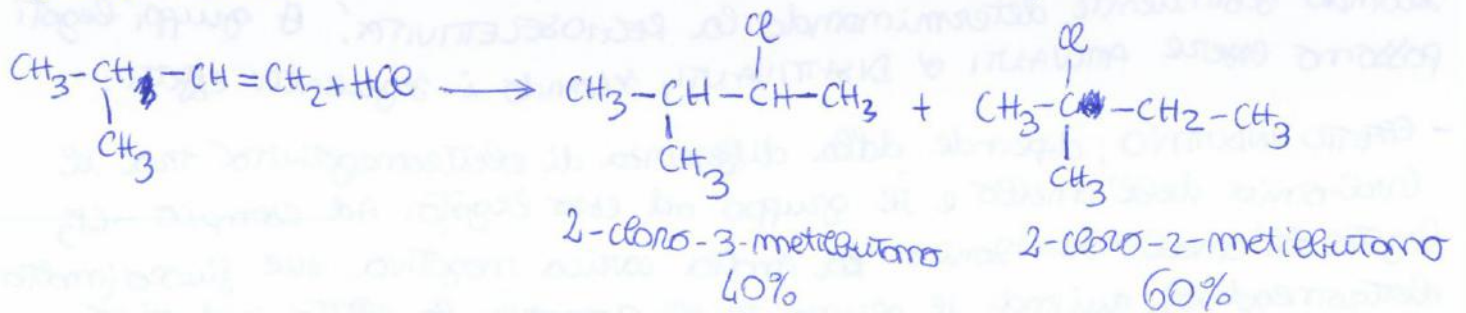 Cl Cl
CH3-CH-CH=CH2+HCl → CH3-CH-CH-CH3 + CH3-C-CH2-CH3
CH3 CH3 CH3
2-cloro-3-metilbutano 2-cloro-2-metilbutano
40% 60%